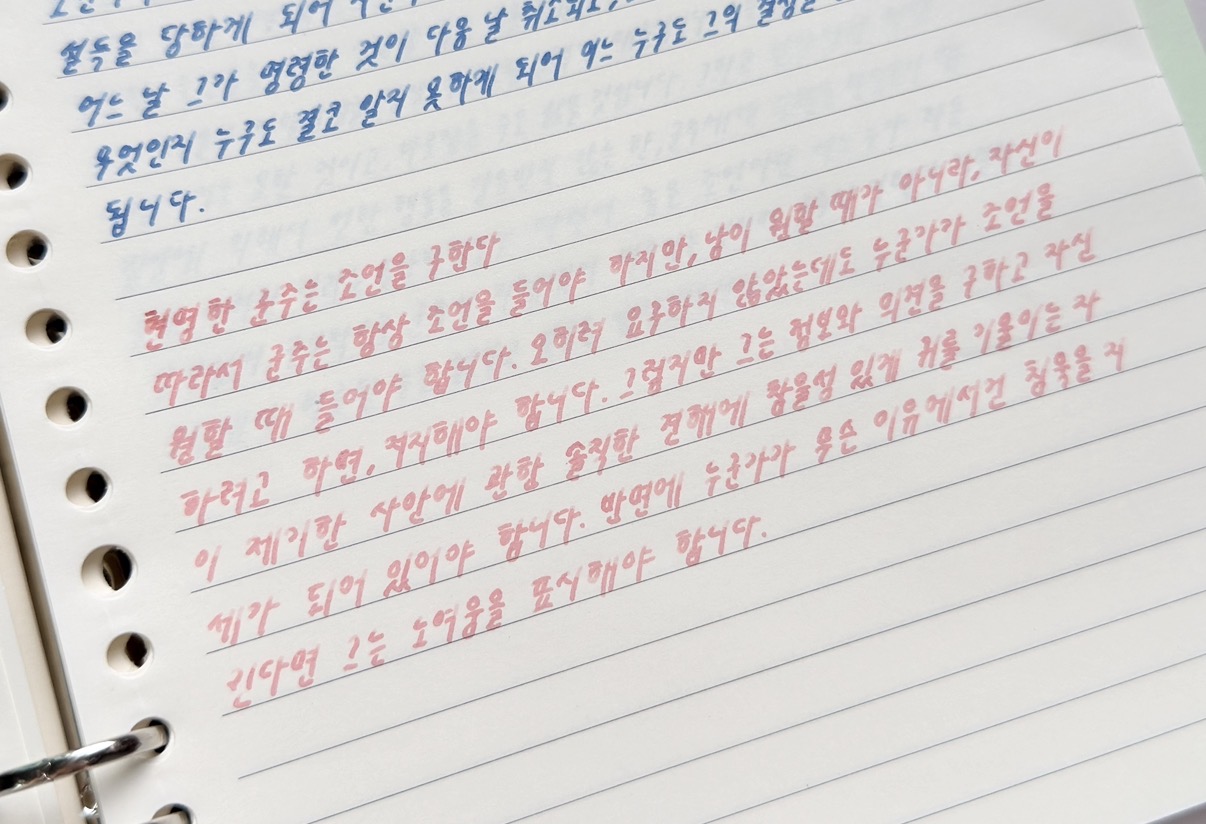 설득을 당하게 되어
어느 날 그가 명령한 것이 다음 날 취소되고,
무엇인지 누구도 결코 알지 못하게 되어 어느 누구도 그의 결정을
됩니다.
현명한 군주는 조언을 구한다
따라서 군주는 항상 조언을 들어야 하지만, 남이 원할 때가 아니라, 자신이
원할 때 들어야 합니다. 오히려 요구하지 않았는데도 누군가가 조언을
하려고 하면, 저지해야 합니다. 그렇지만 그는 정보와 의견을 구하고 자신
이 제기한 사안에 관한 솔직한 견해에 참을성 있게 귀를 기울이는 자
세가 되어 있어야 합니다. 반면에 누군가가 무슨 이유에서건 침묵을 지
긴다면 그는 노여움을 표시해야 합니다.